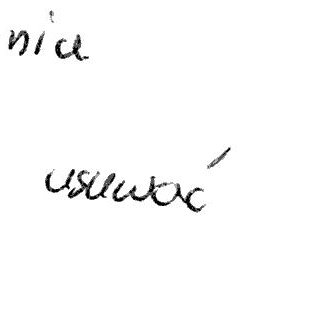 nia
usuwać